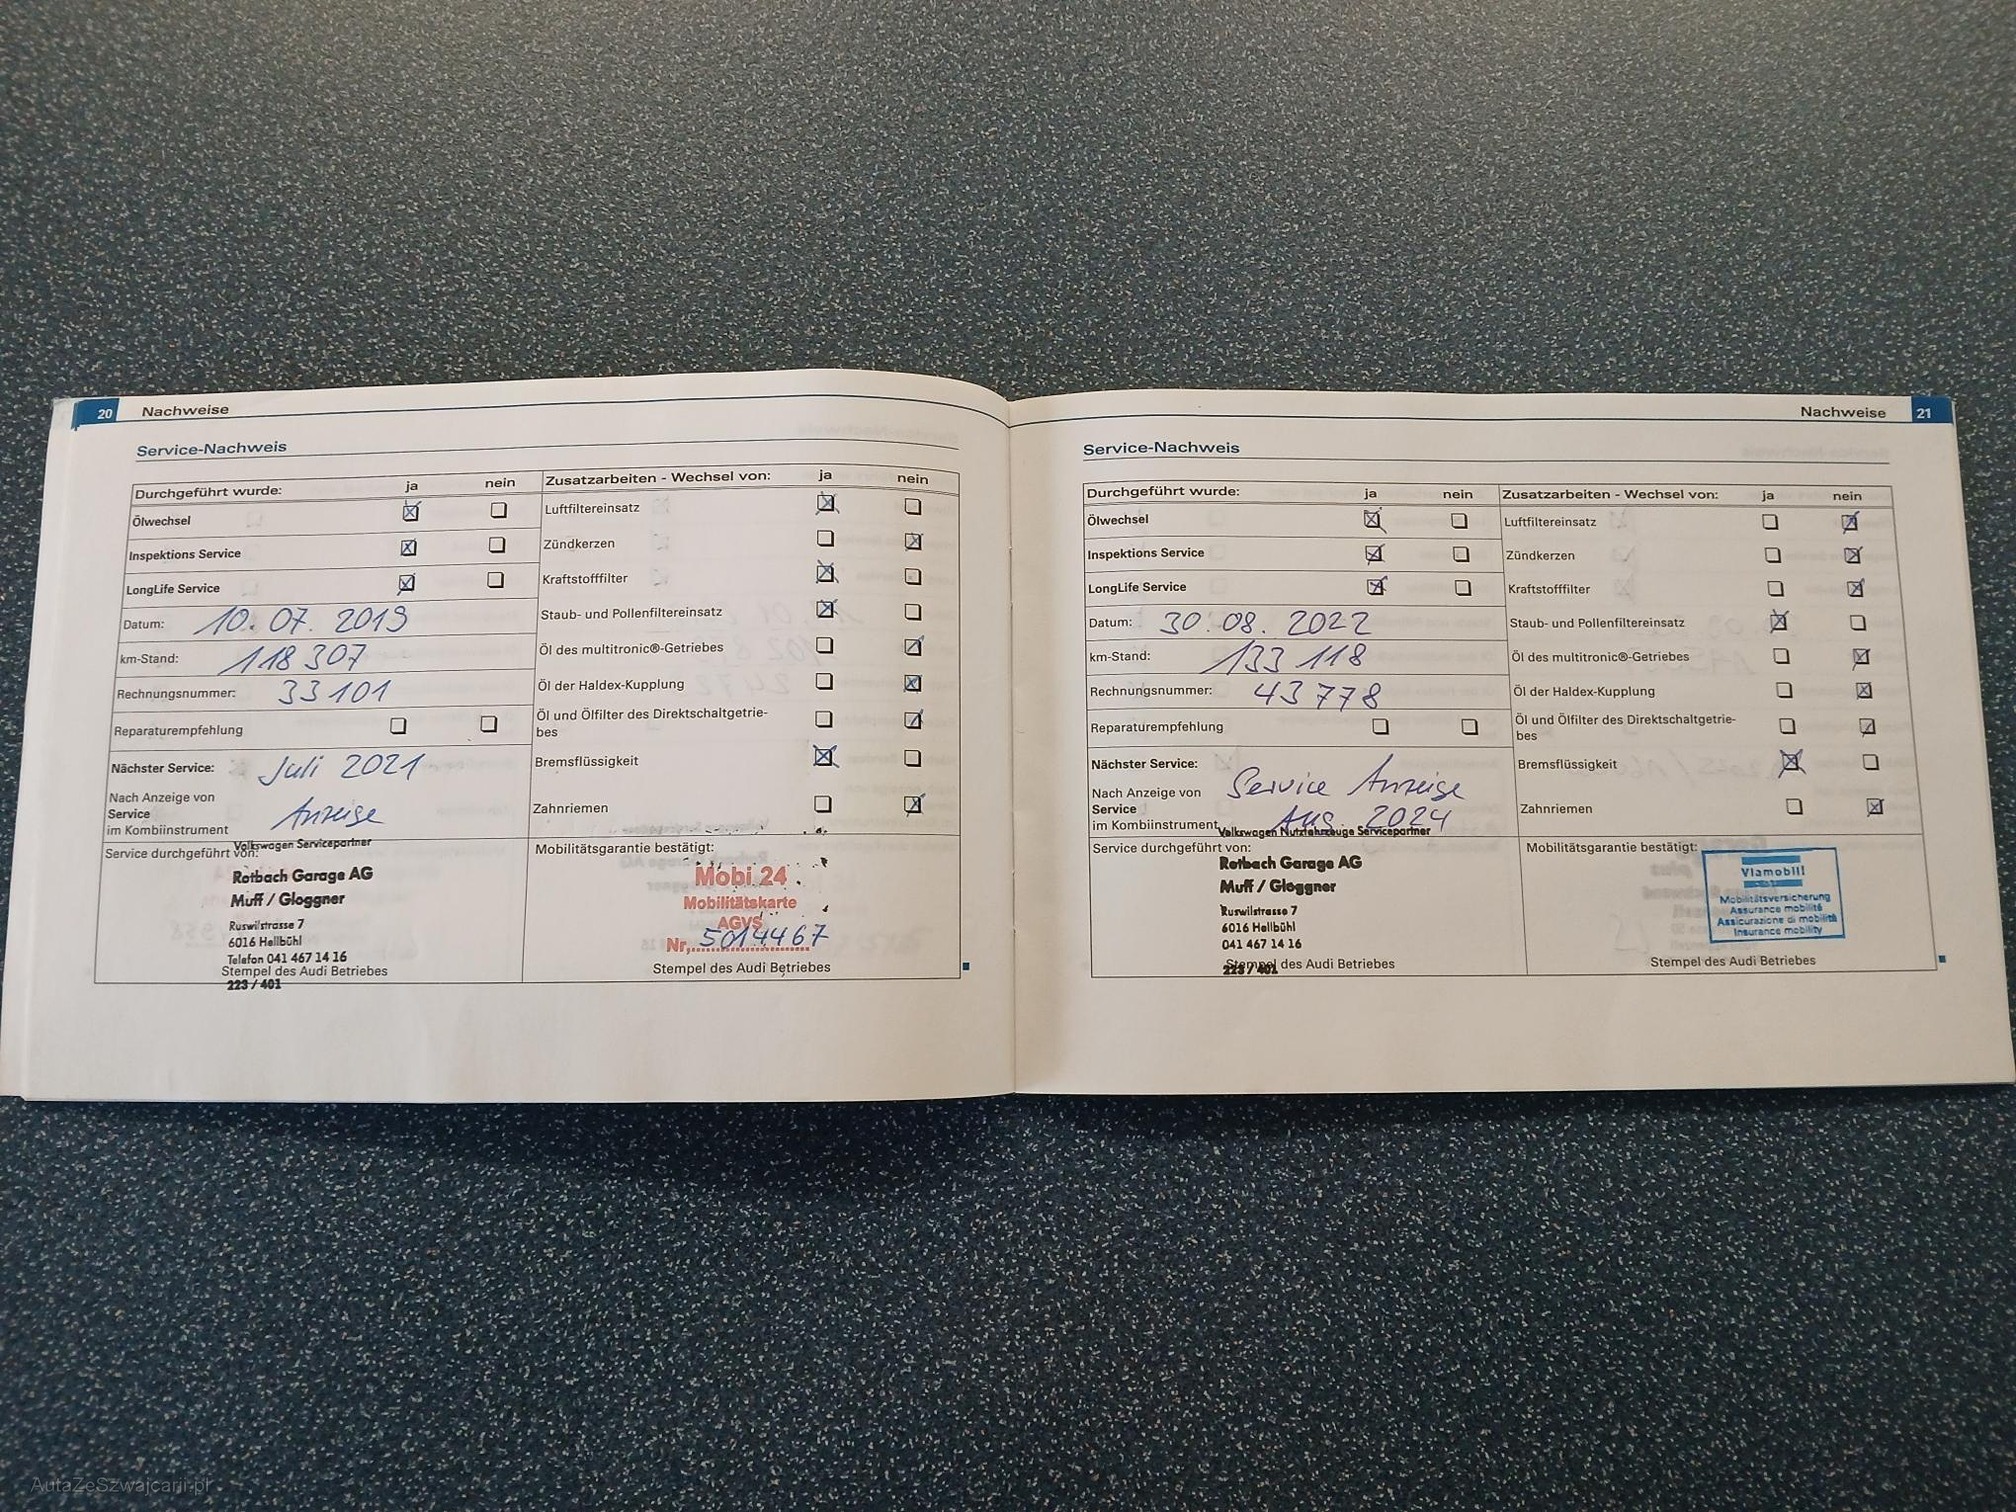 20 Nachweise
Service-Nachweis
Durchgeführt wurde: ja nein
Ölwechsel
Inspektions Service
LongLife Service
Datum: 10.07.2019
km-Stand: 118 307
Rechnungsnummer: 33101
Reparaturempfehlung
Nächster Service: Juli 2021
Nach Anzeige von
Service
im Kombiinstrument Anzeige
Zusatzarbeiten - Wechsel von: ja nein
Luftfiltereinsatz
Zündkerzen
Kraftstofffilter
Staub- und Pollenfiltereinsatz
Öl des multitronic®-Getriebes
Öl der Haldex-Kupplung
Öl und Ölfilter des Direktschaltgetrie-
bes
Bremsflüssigkeit
Zahnriemen
Service durchgeführt von:
Volkswagen Servicepartner
Rotbach Garage AG
Muff / Gloggner
Ruswilstrasse 7
6016 Hellbühl
Telefon 041 467 14 16
Stempel des Audi Betriebes
223 / 401
Mobilitätsgarantie bestätigt:
Mobi 24
Mobilitätskarte
AGVS
Nr. 5014467
Stempel des Audi Betriebes
Nachweise 21
Service-Nachweis
Durchgeführt wurde: ja nein
Ölwechsel
Inspektions Service
LongLife Service
Datum: 30.08.2022
km-Stand: 133 118
Rechnungsnummer: 43778
Reparaturempfehlung
Nächster Service:
Service Anzeige
Nach Anzeige von
Service
im Kombiinstrument Aug 2024
Zusatzarbeiten - Wechsel von: ja nein
Luftfiltereinsatz
Zündkerzen
Kraftstofffilter
Staub- und Pollenfiltereinsatz
Öl des multitronic®-Getriebes
Öl der Haldex-Kupplung
Öl und Ölfilter des Direktschaltgetrie-
bes
Bremsflüssigkeit
Zahnriemen
Volkswagen Nutzfahrzeuge Servicepartner
Service durchgeführt von:
Rotbach Garage AG
Muff / Gloggner
Ruswilstrasse 7
6016 Hellbühl
041 467 14 16
Stempel des Audi Betriebes
223 / 401
Mobilitätsgarantie bestätigt:
Viamobil!
Mobilitätsversicherung
Assurance mobilité
Assicurazione di mobilità
Insurance mobility
Stempel des Audi Betriebes
AutaZeSzwajcarii.pl